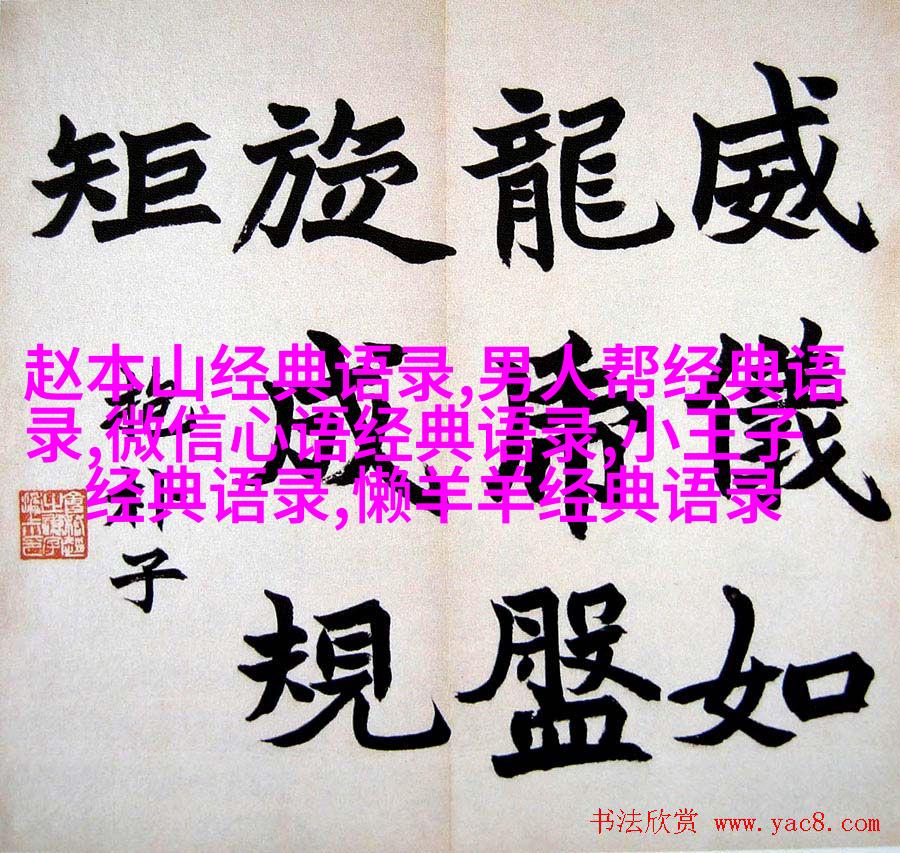 威儀如
龍盤
旋成規
矩
子
赵本山经典语录,男人帮经典语
录,微信心语经典语录,小王子
经典语录,懒羊羊经典语录
书法欣赏 www.yac8.com